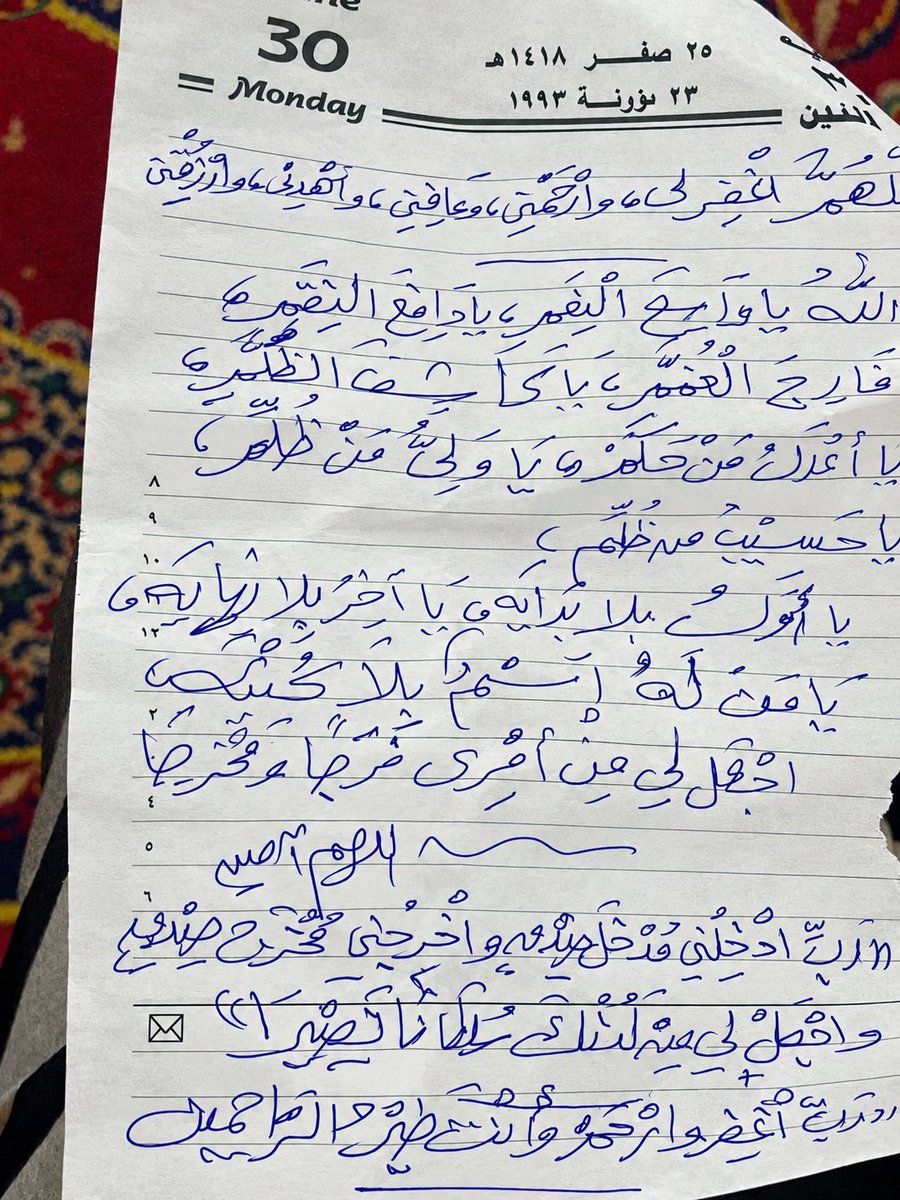 30
Monday
٢٥ صفـــر ١٤١٨هـ
٢٣ بؤونـة ١٩٩٣
الاثنين
اللَّهُمَّ اغْفِر لى، وارْحَمْنِي، وعَافِنِي، وأهْدِنى، وارْزُقْنِي
اللهُ يا وَاسِعَ الْنِعَمِ، يا دَافِعَ النِقَمِ،
فَارِجَ الْغُمَمِ، يَا كَاشِفَ الظُلَمِ،
يا أعْدَلُ مَنْ حَكَمْ، يَا وَلِىُّ مَنْ ظُلِمَ،
٨
٩
يا حَسيْبُ من ظُلِم،
١٠
يا أَوَّلُ بلا بَدَايَه، يَا آخِرُ بِلا نِهايَه،
١٢
يَا مَنْ لَهُ إسْمٌ بِلَا كُنْيَه،
٢
اجْعَل لِي مِنْ أَمْرِى فَرَجًا وَمَخْرَجًا
٤
٥
اللهم آمين
٦
"رَبِّ ادْخِلْنِي مُدْخَلَ صِدْقٍ واخْرِجْنِي مُخْرَجَ صِدْقٍ
واجْعَلْ لِي مِنْ لَدُنْكَ سُلطَانًا نَصِيْرَا"
"رَبِّ أغْفِر وارْحَمْ وأنْتَ خَيْرُ الرَاحمين